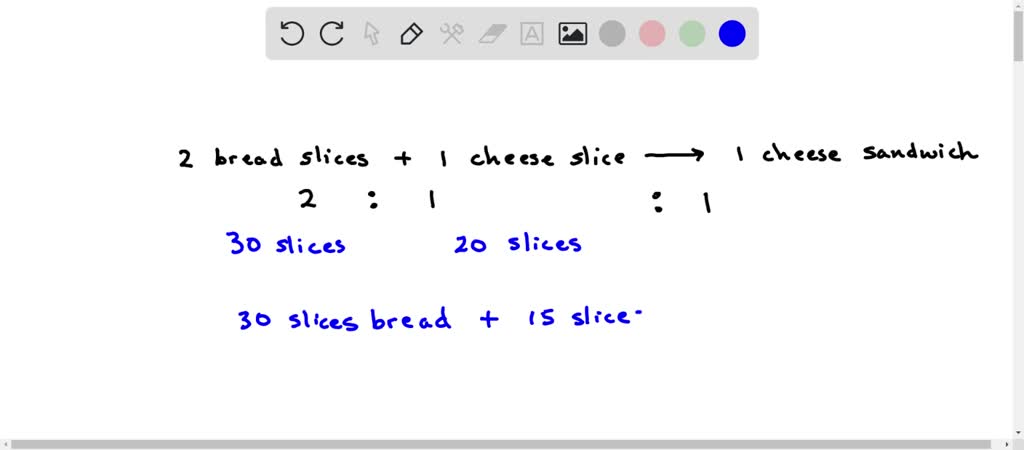 2 bread slices + 1 cheese slice → 1 cheese sandwich
2 : 1 : 1
30 slices 20 slices
30 slices bread + 15 slice